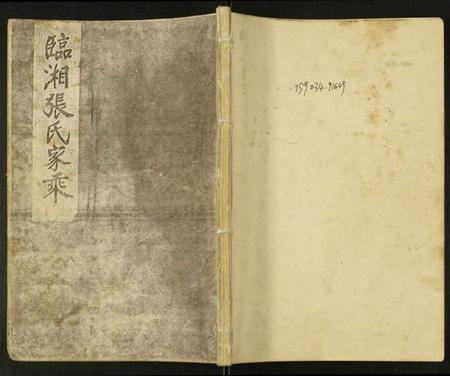 臨湘張氏家乘
759 234.91649